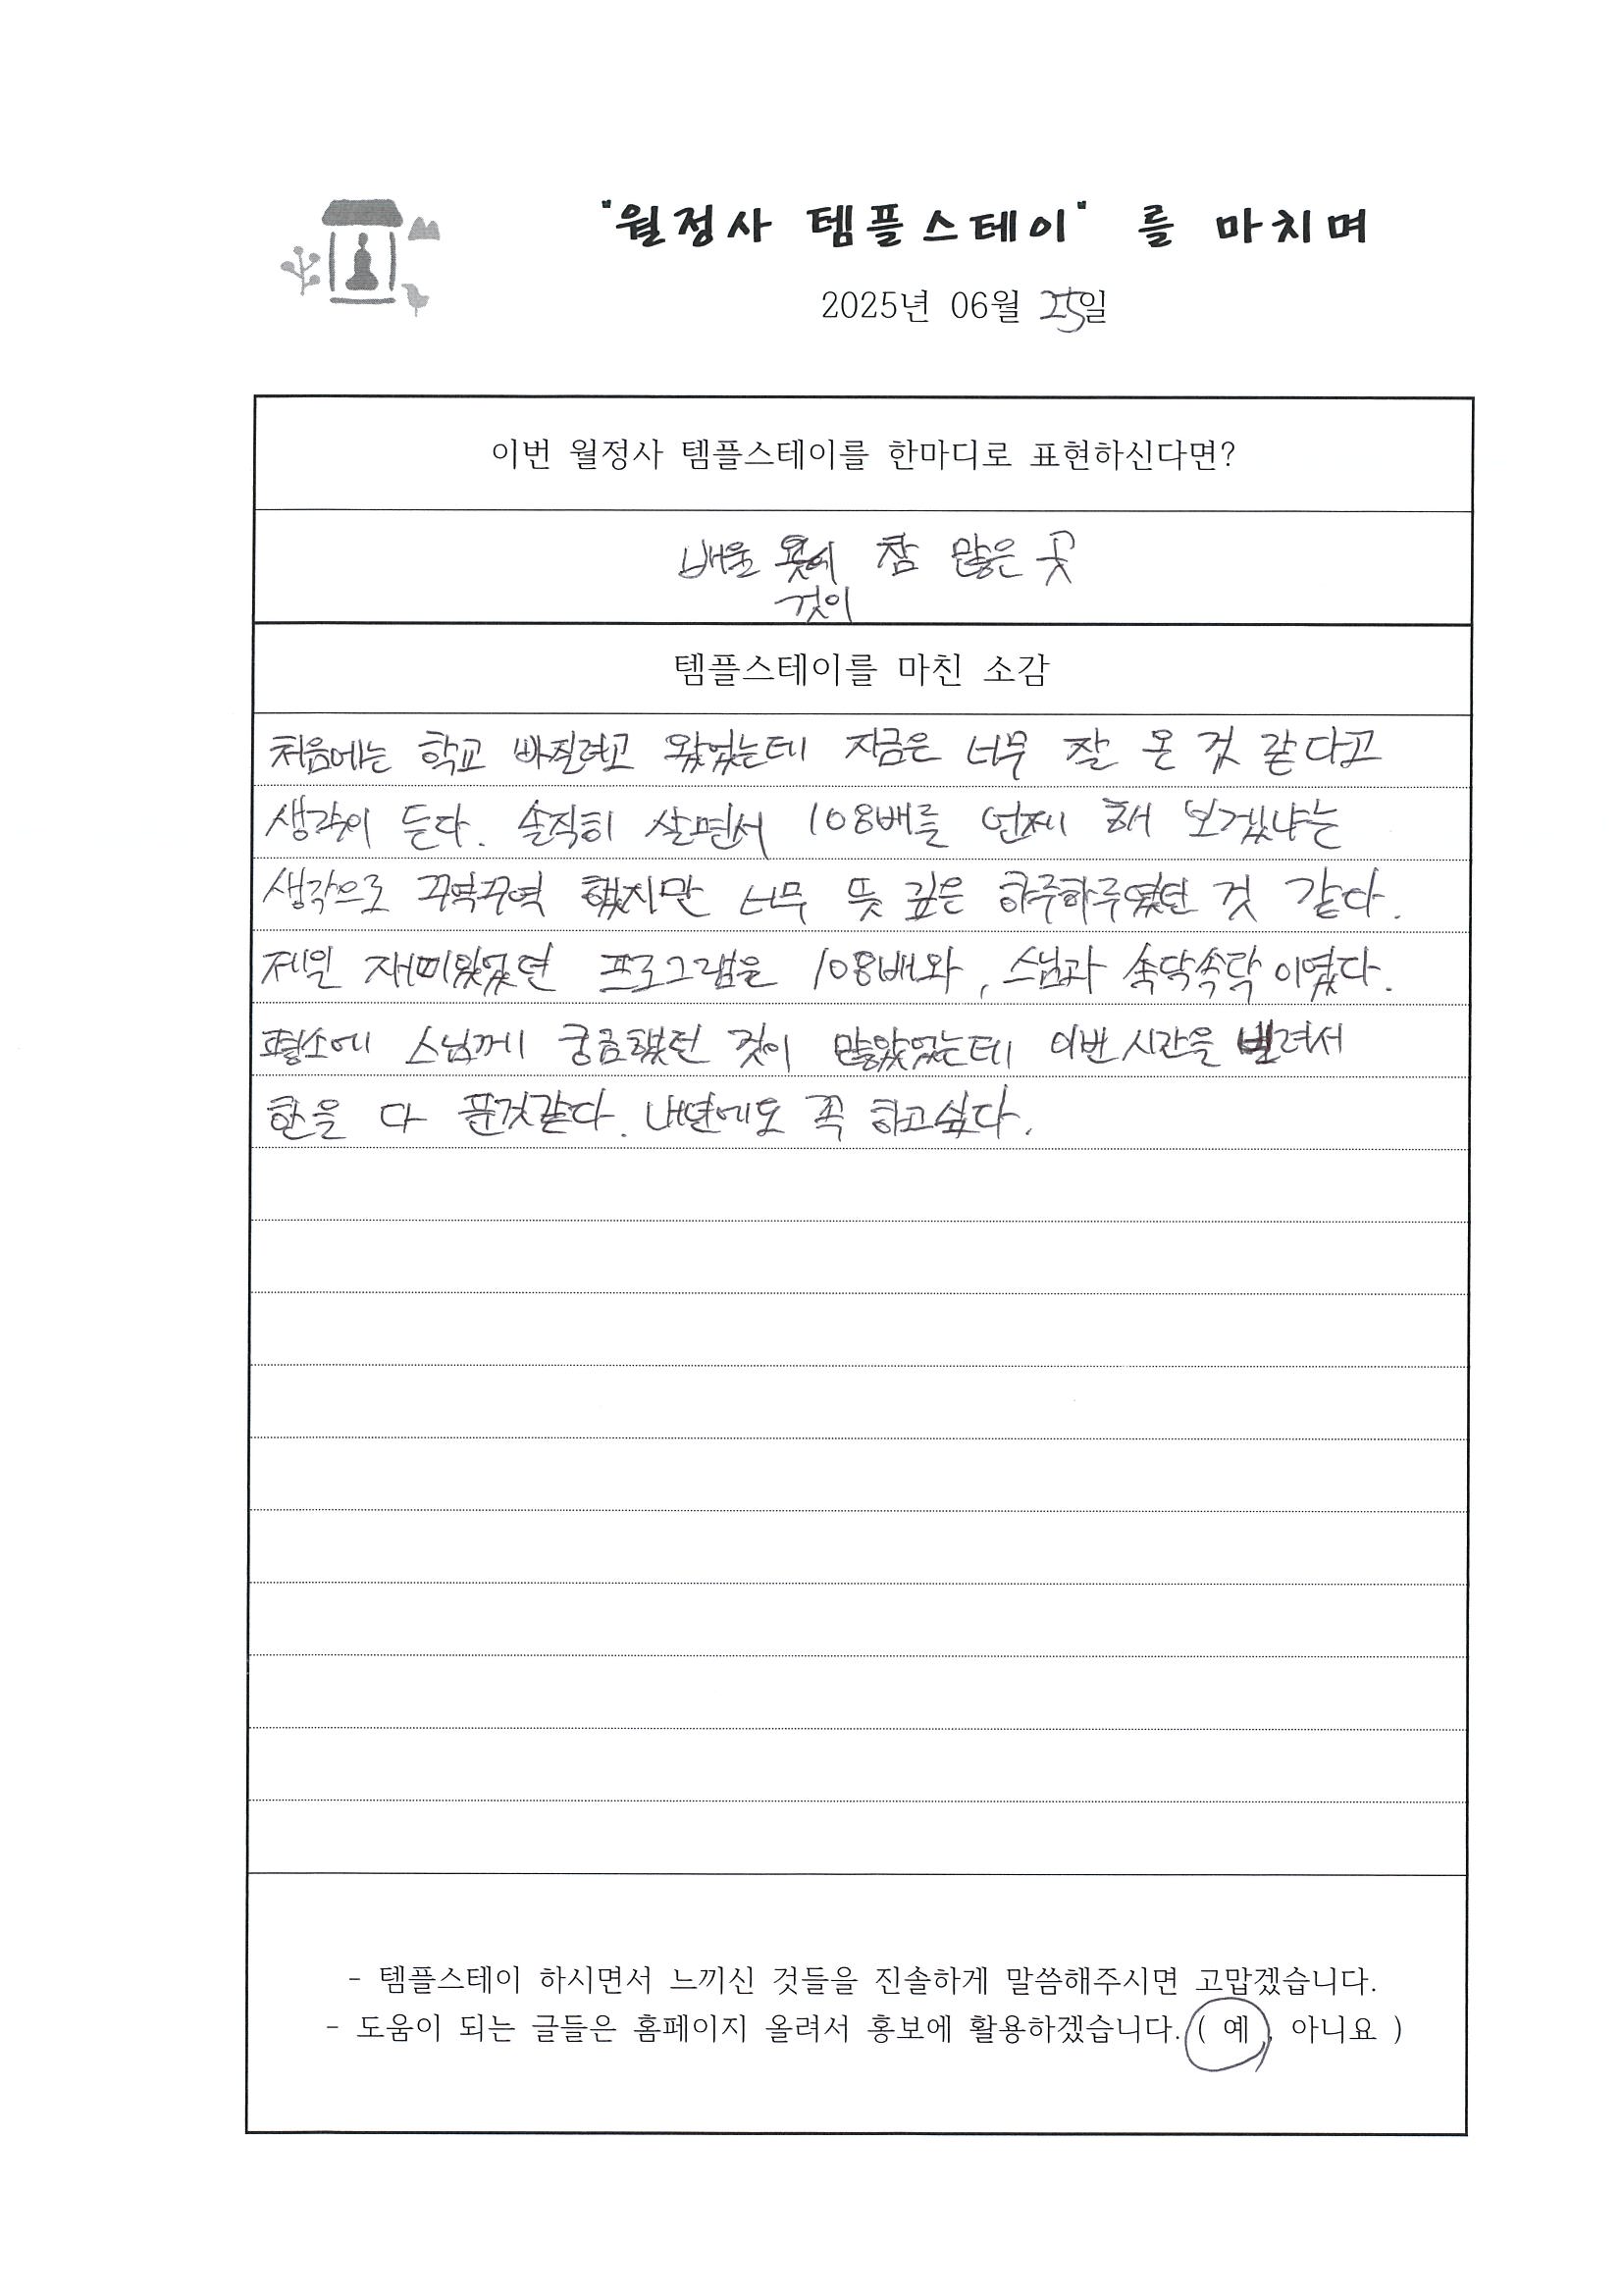 "월정사 템플스테이" 를 마치며
2025년 06월 25일
이번 월정사 템플스테이를 한마디로 표현하신다면?
배울 참 많은 곳
것이
템플스테이를 마친 소감
처음에는 학교 빠질려고 왔었는데 지금은 너무 잘 온 것 같다고
생각이 든다. 솔직히 살면서 108배를 언제 해 보겠냐는
생각으로 꾸역꾸역 했지만 너무 뜻 깊은 하루하루였던 것 같다.
제일 재미있었던 프로그램은 108배와, 스님과 속닥속닥 이였다.
평소에 스님께 궁금했던 것이 많았었는데 이번 시간을 빌려서
한을 다 푼것같다. 내년에도 꼭 하고싶다.
- 템플스테이 하시면서 느끼신 것들을 진솔하게 말씀해주시면 고맙겠습니다.
- 도움이 되는 글들은 홈페이지 올려서 홍보에 활용하겠습니다. ( 예 , 아니요 )